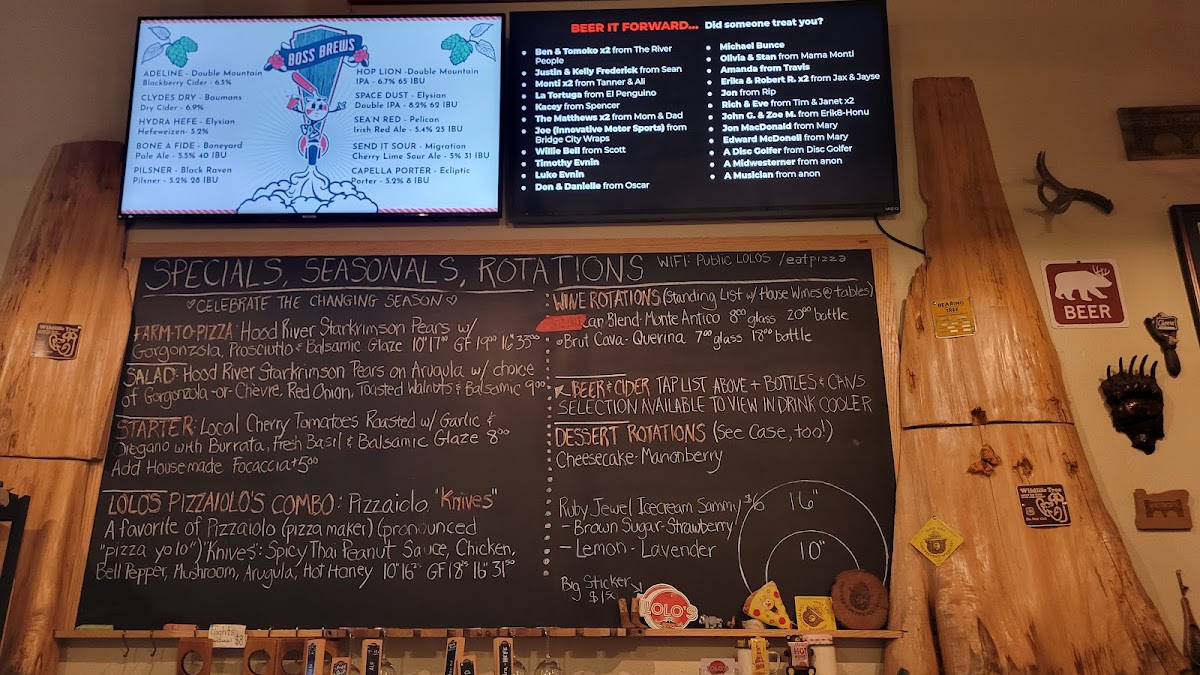 BOSS BREWS
ADELINE - Double Mountain
Blackberry Cider - 6.5%
CLYDES DRY - Baumans
Dry Cider - 6.9%
HYDRA HEFE - Elysian
Hefeweizen- 5.2%
BONE A FIDE - Boneyard
Pale Ale - 5.5% 40 IBU
PILSNER - Black Raven
Pilsner - 5.2% 28 IBU
HOP LION -Double Mountain
IPA - 6.7% 65 IBU
SPACE DUST - Elysian
Double IPA - 8.2% 62 IBU
SEA'N RED - Pelican
Irish Red Ale - 5.4% 25 IBU
SEND IT SOUR - Migration
Cherry Lime Sour Ale - 5% 31 IBU
CAPELLA PORTER - Ecliptic
Porter - 5.2% 8 IBU
BEER IT FORWARD... Did someone treat you?
Ben & Tomoko x2 from The River
People
Justin & Kelly Frederick from Sean
Monti x2 from Tanner & Ali
La Tortuga from El Penguino
Kacey from Spencer
The Matthews x2 from Mom & Dad
Joe (Innovative Motor Sports) from
Bridge City Wraps
Willie Bell from Scott
Timothy Evnin
Luke Evnin
Don & Danielle from Oscar
Michael Bunce
Olivia & Stan from Mama Monti
Amanda from Travis
Erika & Robert R. x2 from Jax & Jayse
Jon from Rip
Rich & Eve from Tim & Janet x2
John G. & Zoe M. from Erik8-Honu
Jon MacDonald from Mary
Edward McDonell from Mary
A Disc Golfer from Disc Golfer
A Midwesterner from anon
A Musician from anon
VIZIO
SPECIALS, SEASONALS, ROTATIONS
WIFI: Public LOLOS /eatpizza
♡CELEBRATE THE CHANGING SEASON♡
FARM-TO-PIZZA: Hood River Starkrimson Pears w/
Gorgonzola, Prosciutto & Balsamic Glaze 10" 17⁰⁰ GF 19⁰⁰ 16" 33⁰⁰
SALAD: Hood River Starkrimson Pears on Arugula w/ choice
of Gorgonzola -or- Chevre, Red Onion, Toasted Walnuts & Balsamic 9⁰⁰
STARTER: Local Cherry Tomatoes Roasted w/ Garlic &
Oregano with Burrata, Fresh Basil & Balsamic Glaze 8⁰⁰
Add Housemade Focaccia +5⁰⁰
LOLO'S PIZZAIOLO'S COMBO: Pizzaiolo "Knives"
A favorite of Pizzaiolo (pizza maker) (pronounced
"pizza yolo") 'Knives': Spicy Thai Peanut Sauce, Chicken,
Bell Pepper, Mushroom, Arugula, Hot Honey 10" 16²⁵ GF 18²⁵ 16" 31⁵⁰
WINE ROTATIONS (Standing List w/ House Wines @ tables)
can Blend - Monte Antico 8⁰⁰ glass 20⁰⁰ bottle
Brut Cava - Querina 7⁰⁰ glass 18⁰⁰ bottle
BEER & CIDER TAP LIST ABOVE + BOTTLES & CANS
SELECTION AVAILABLE TO VIEW IN DRINK COOLER
DESSERT ROTATIONS (See Case, too!)
Cheesecake - Marionberry
Ruby Jewel Icecream Sammy $6
- Brown Sugar - Strawberry
- Lemon - Lavender
16"
10"
Big Sticker
LOLO'S
BEER
BEARING
TREE
Wildlife Tree
Wildlife Tree
Cheers